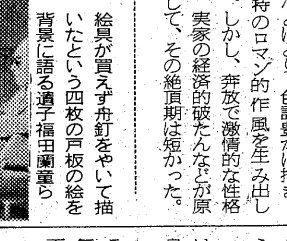 特のロマン的作風を生み出し
しかし、奔放で激情的な性格
実家の経済的破たんなどが原
して、その絶頂期は短かった。
絵具が買えず舟釘をやいて描
いたという四枚の戸板の絵を
背景に語る遺子福田蘭童ら